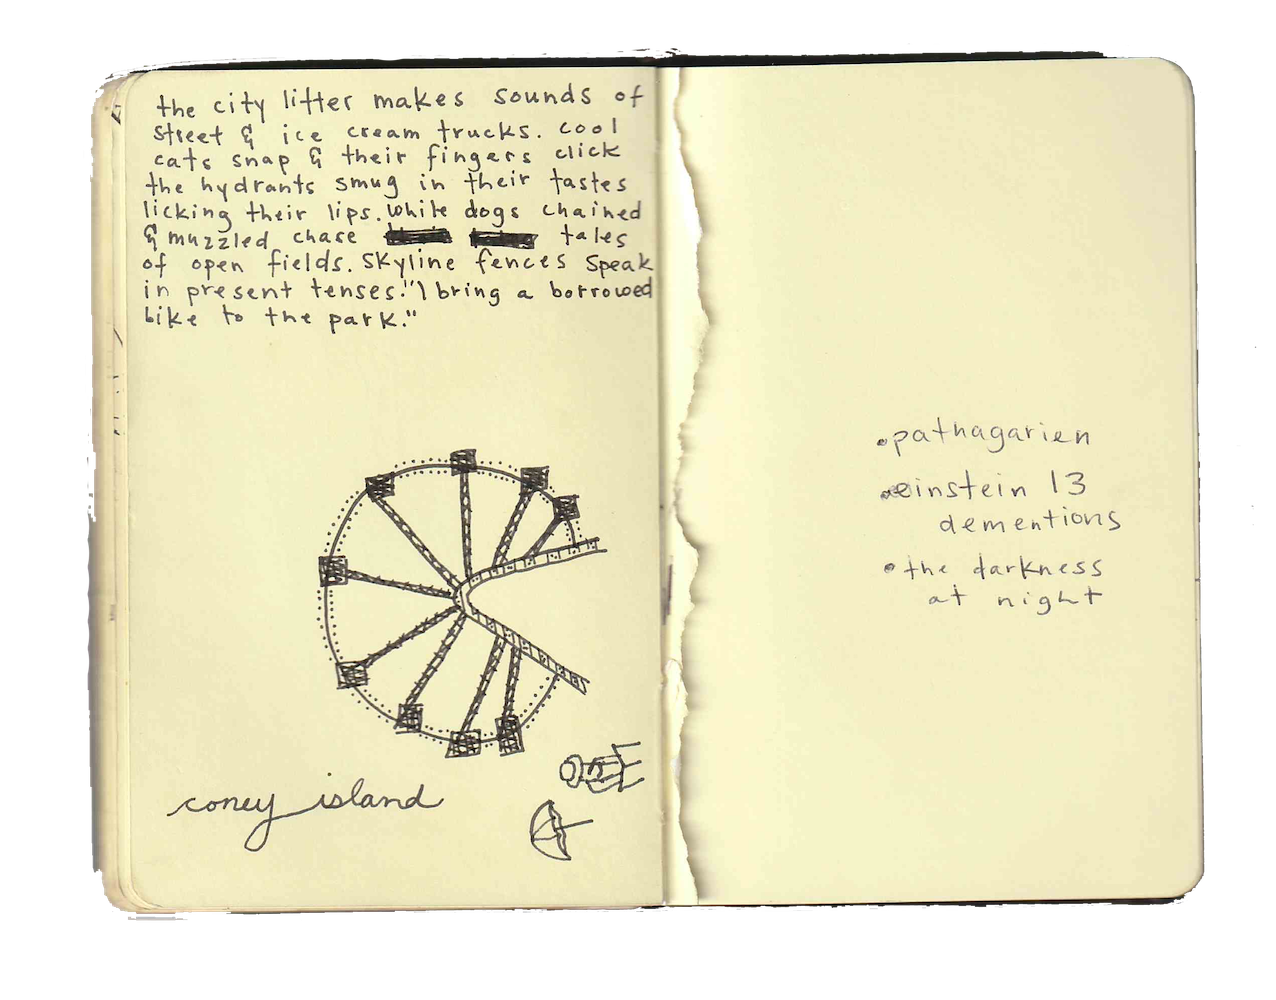 the city litter makes sounds of
street & ice cream trucks. cool
cats snap & their fingers click
the hydrants smug in their tastes
licking their lips. white dogs chained
& muzzled chase tales
of open fields. skyline fences speak
in present tenses."I bring a borrowed
bike to the park."
coney island
•pathagarien
•einstein 13
dementions
•the darkness
at night